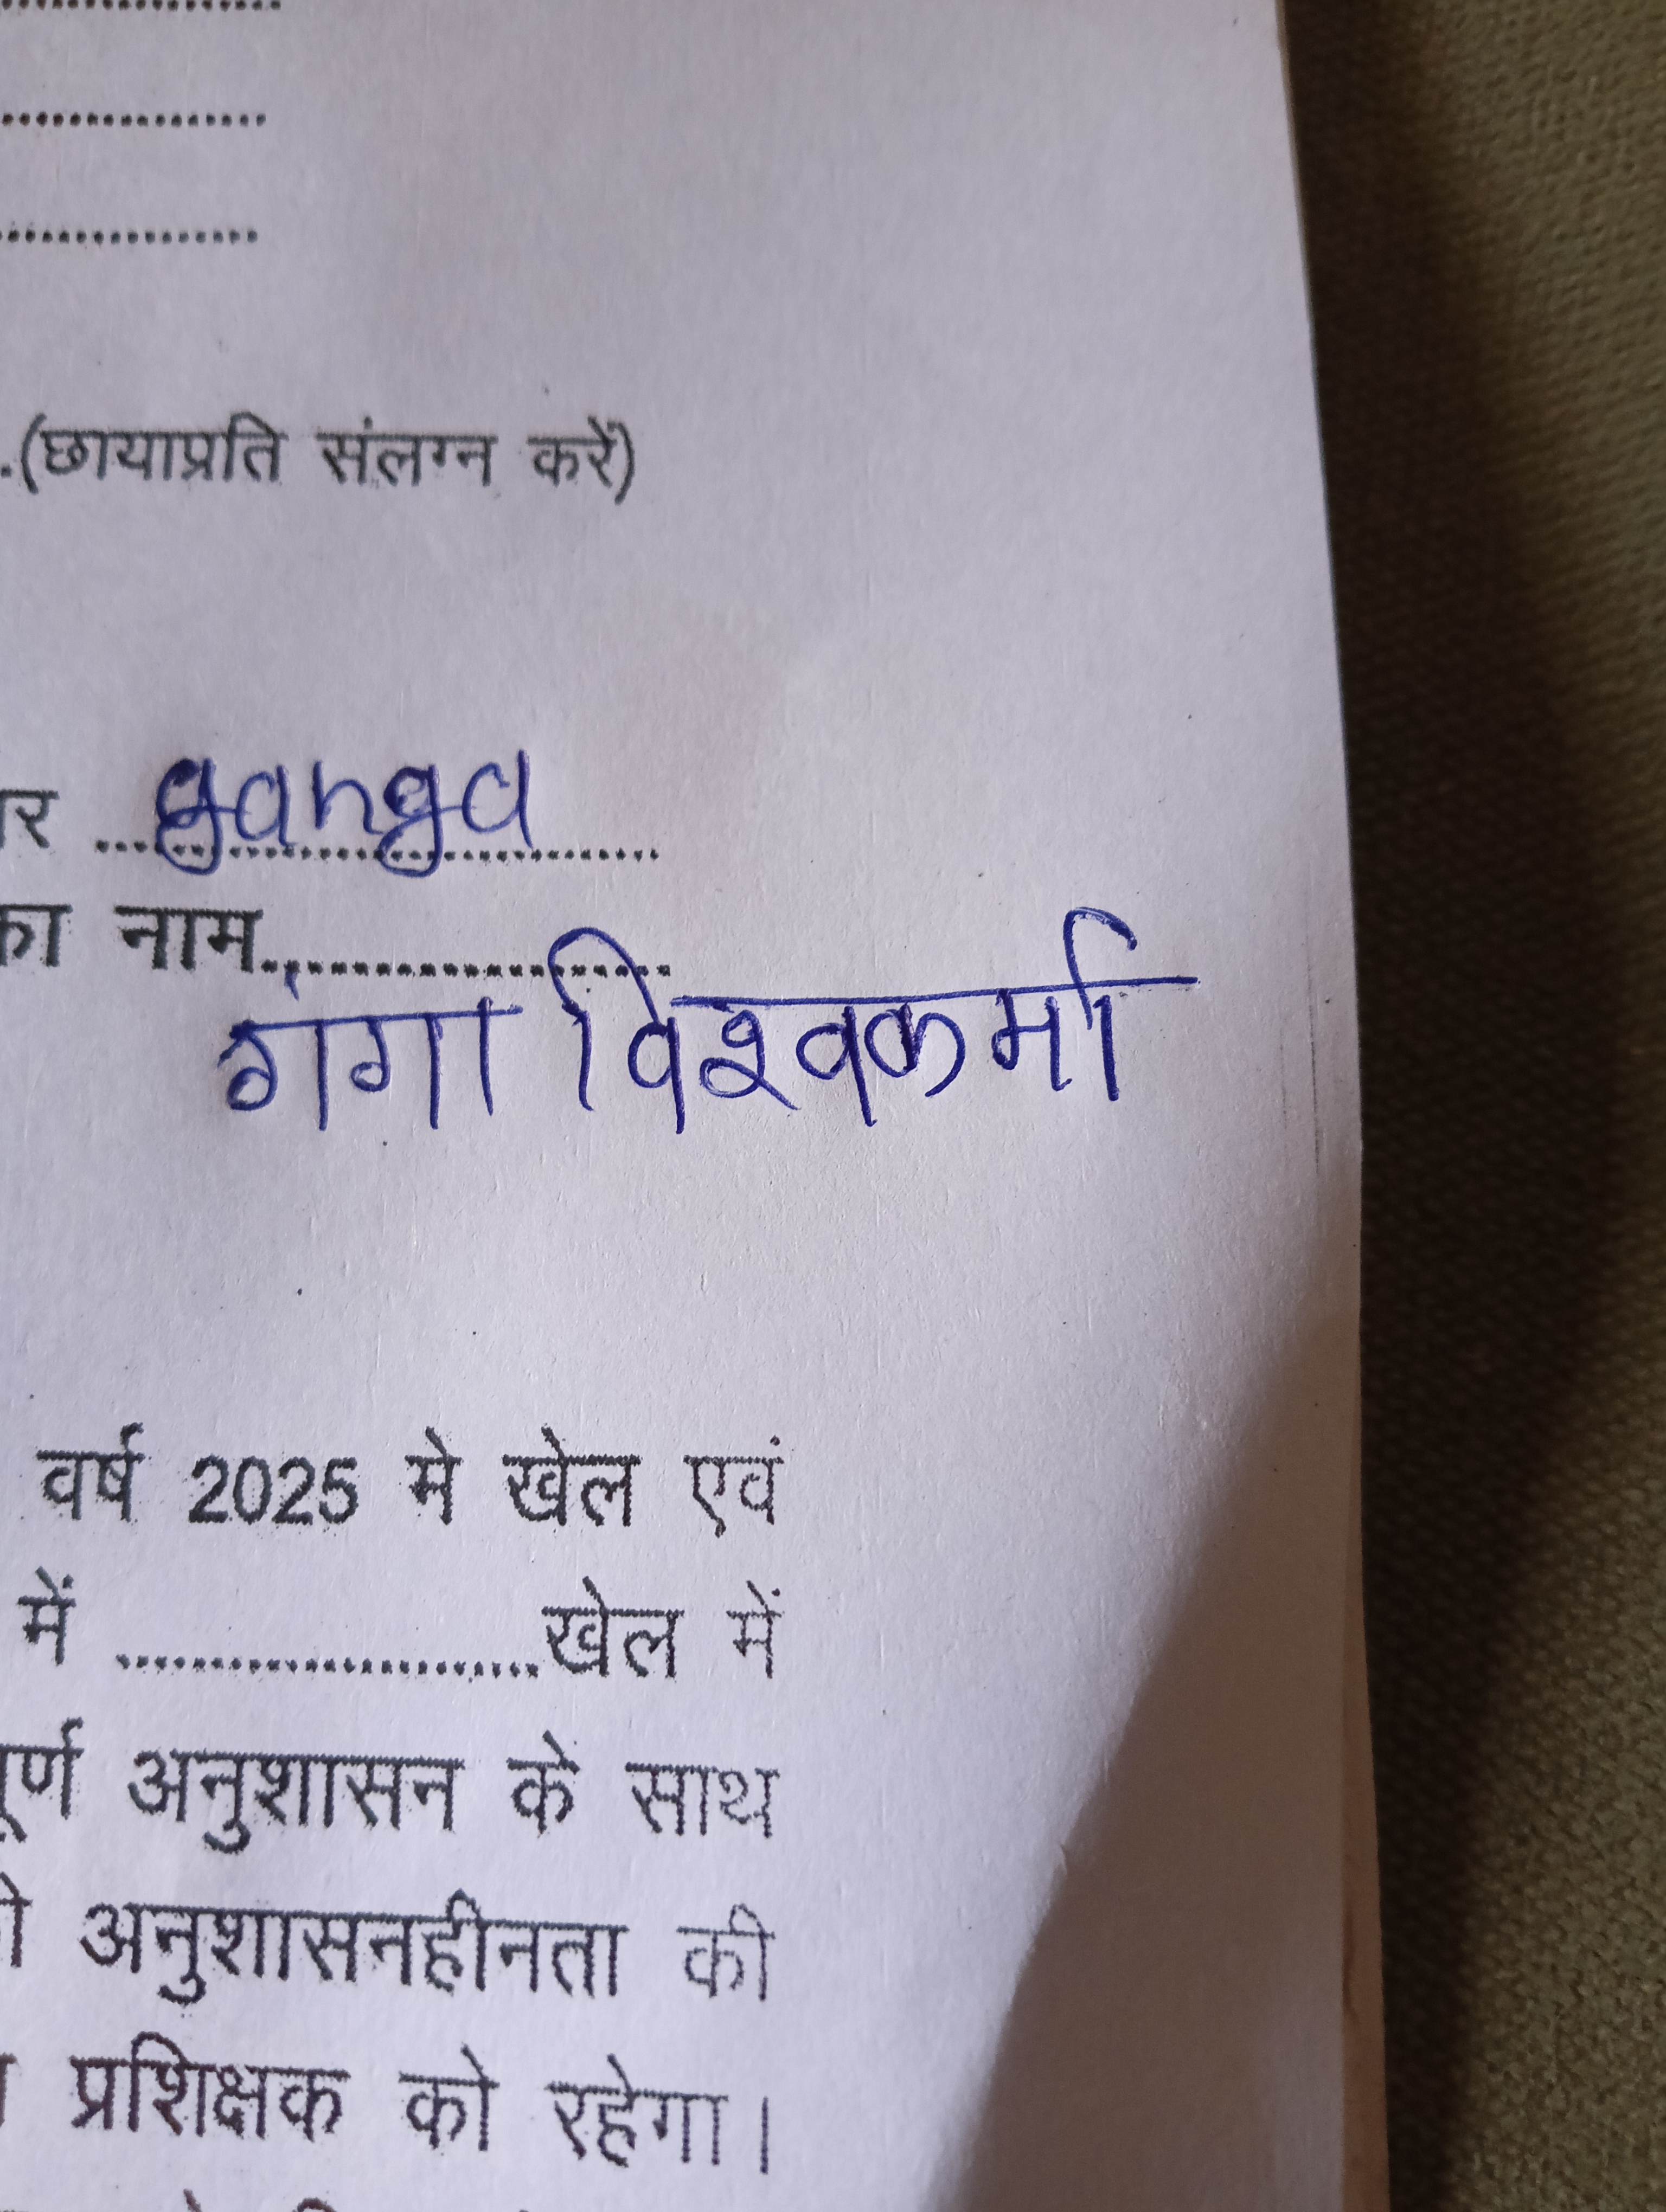 ....................
....................
....................
.(छायाप्रति संलग्न करें)
....ganga............
का नाम.....................
गंगा विश्वकर्मा
वर्ष 2025 मे खेल एवं
में ........................खेल में
अनुशासन के साथ
अनुशासनहीनता की
प्रशिक्षक को रहेगा।